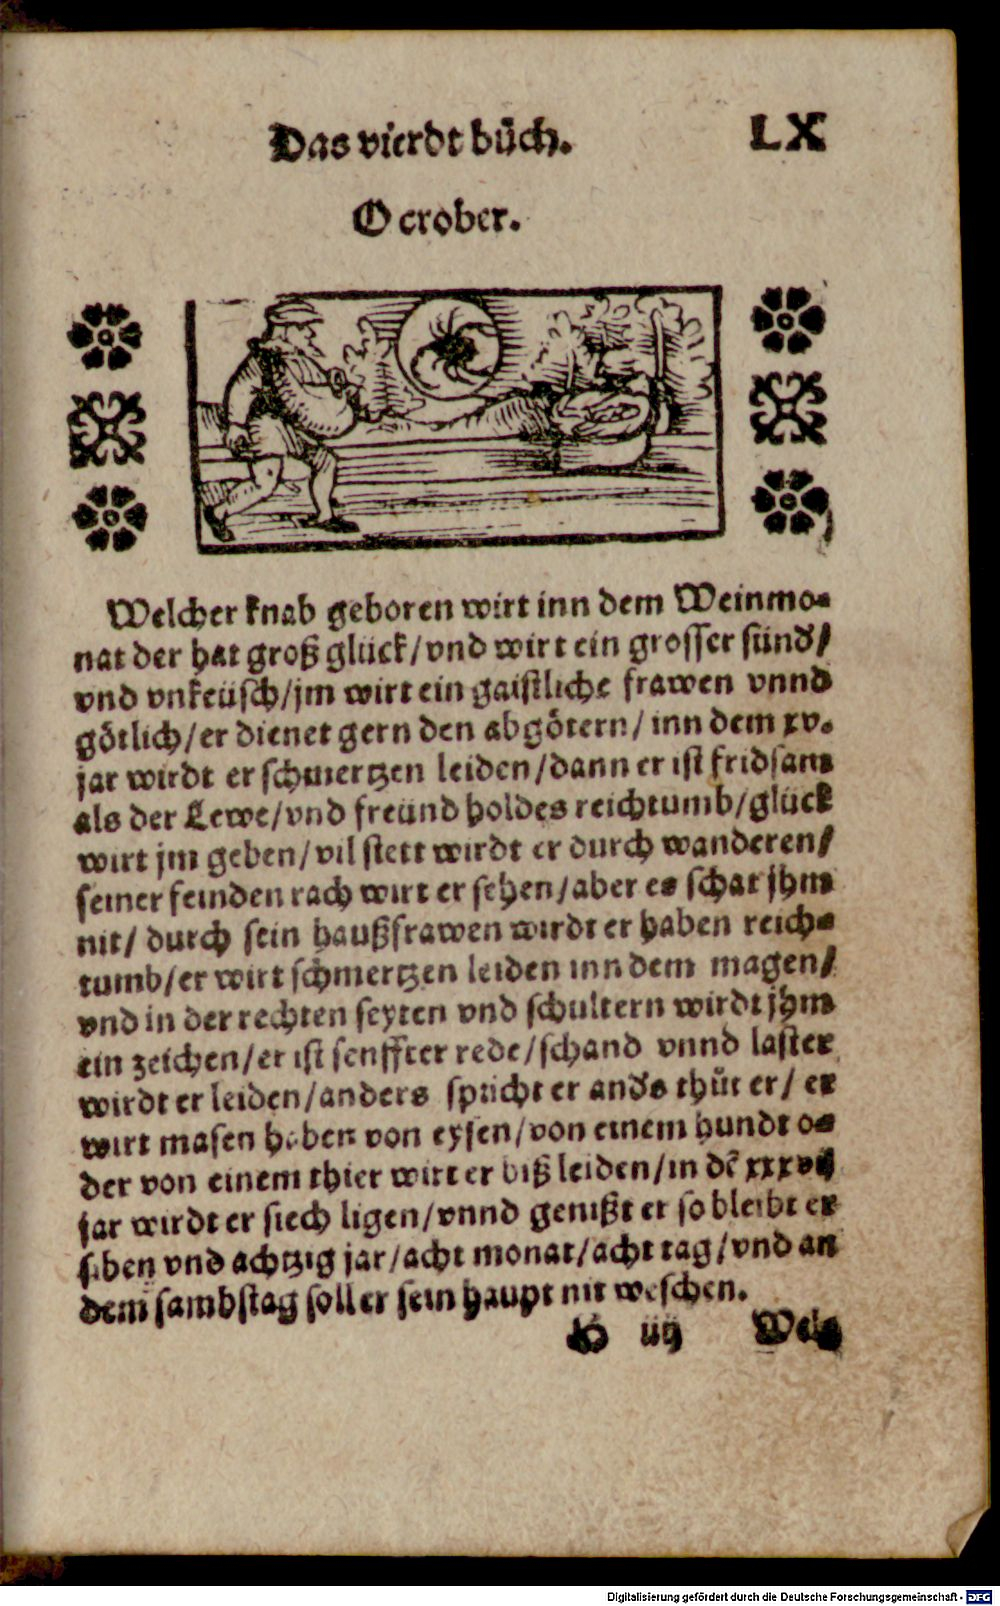 Das vierdt bůch.
LX
October.
Welcher knab geboren wirt inn dem Weinmo-
nat der hat groß glück/vnd wirt ein grosser sünd/
vnd vnkeüsch/jm wirt ein gaistliche frawen vnnd
götlich/er dienet gern den abgötern/ inn dem xv.
jar wirdt er schmertzen leiden/dann er ist fridsam
als der Lewe/vnd freünd holdes reichtumb/glück
wirt jm geben/vil stett wirdt er durch wanderen/
seiner feinden rach wirt er sehen/aber es schat jhm
nit/ durch sein haußfrawen wirdt er haben reich-
tumb/er wirt schmertzen leiden inn dem magen/
vnd in der rechten seyten vnd schultern wirdt jhm
ein zeichen/er ist senffter rede/schand vnnd laster
wirdt er leiden/anders spricht er anders thůt er/ er
wirt masen haben von eysen/von einem hundt o-
der von einem thier wirt er biß leiden/in dē xxxvij
jar wirdt er siech ligen/vnnd genißt er so bleibt er
siben vnd achtzig jar/acht monat/acht tag/vnd an
dem sambstag soll er sein haupt nit weschen.
H iiij Wel-
Digitalisierung gefördert durch die Deutsche Forschungsgemeinschaft - DFG